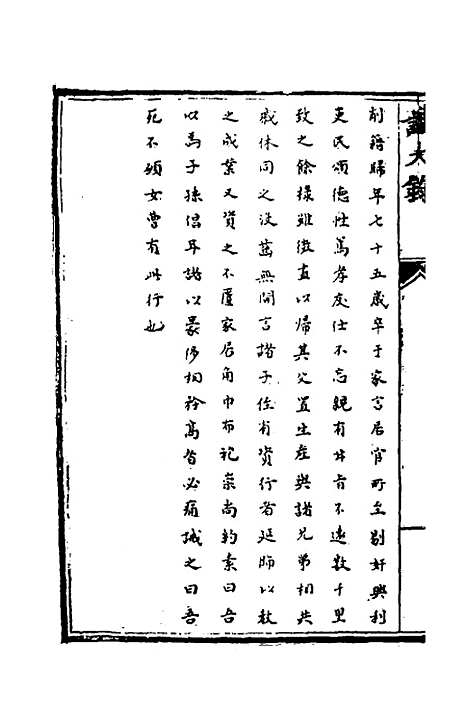 削籍歸年七十五歲卒于家言居官所至剔奸興利
吏民頌德性篤孝友仕不忘親有甘旨不遠數千里
致之餘祿雖微直以歸其父置生產與諸兄弟相共
戚休同之没齒無間言諸子侄有資行者延師以教
之成業又資之不匱家居角巾布袍崇尚約素曰吾
以為子孫倡耳諸以暴侈相矜高者必痛誡之曰吾
死不願女曹有此行也